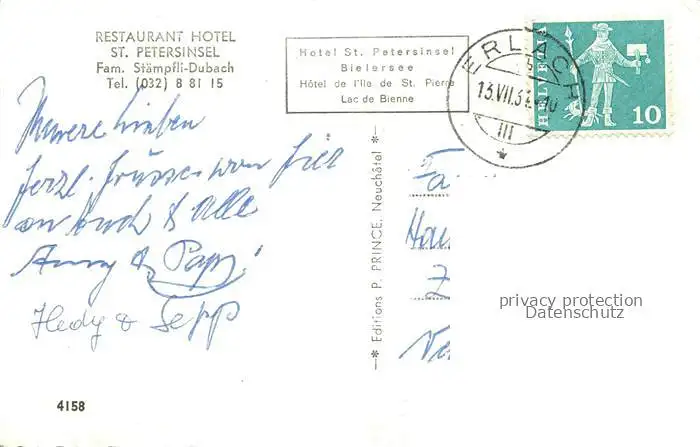 RESTAURANT HOTEL
ST. PETERSINSEL
Fam. Stämpfli-Dubach
Tel. (032) 8 81 15
Hotel St. Petersinsel
Bielersee
Hôtel de l'Ile de St. Pierre
Lac de Bienne
ERLACH
13.VII.
HELVETIA
10
Lieben
herzl. Grüsse von hier
an Euch & Alle
& Papi
Hedy & Sepp
—* Editions P. PRINCE, Neuchâtel *—
privacy protection
Datenschutz
4158